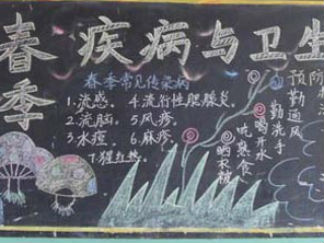 春季
疾病与卫生
春季常见传染病
1.流感。 4.流行性腮腺炎。
2.流脑。 5.风疹。
3.水痘。 6.麻疹。
7.猩红热。
预防
勤通风
勤洗手
喝开水
吃熟食
晒衣被